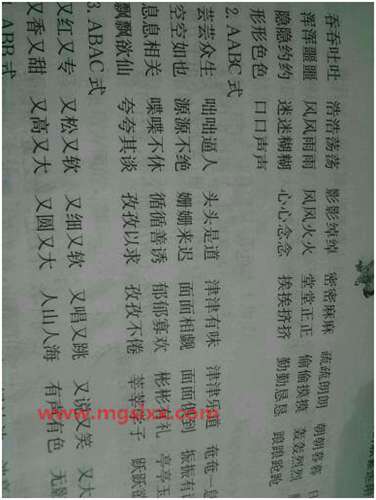 吞吞吐吐 浩浩荡荡 影影绰绰 密密麻麻 疏疏朗朗 朝朝暮暮
浑浑噩噩 风风雨雨 风风火火 堂堂正正 偷偷摸摸 轰轰烈烈
隐隐约约 迷迷糊糊 心心念念 挨挨挤挤 勤勤恳恳 踉踉跄跄
形形色色 口口声声
2. AABC 式
芸芸众生 咄咄逼人 头头是道 津津有味 津津乐道 奄奄一
空空如也 源源不绝 姗姗来迟 面面相觑 面面俱到 振振有
息息相关 喋喋不休 循循善诱 郁郁寡欢 彬彬有礼 亭亭玉
飘飘欲仙 夸夸其谈 孜孜以求 孜孜不倦 莘莘学子 跃跃欲
3. ABAC 式
又红又专 又松又软 又细又软 又唱又跳 又说又笑 又大
又香又甜 又高又大 又圆又大 人山人海 有声有色 无
ABB 式
www.mgdxx.com